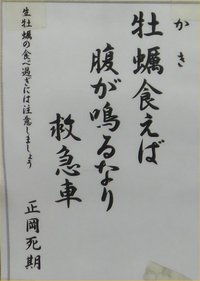 かき
牡蠣食えば
腹が鳴るなり
救急車
正岡死期
生牡蠣の食べ過ぎには注意しましょう